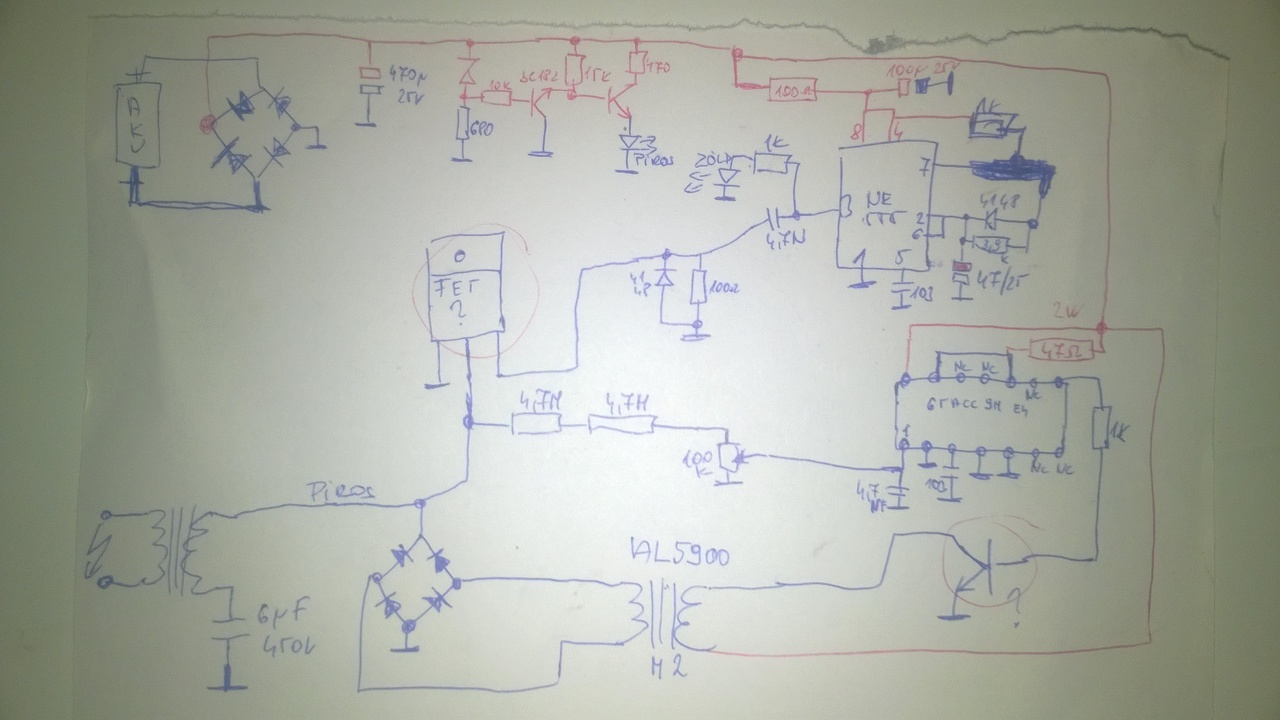 AKU
470µ
25V
10K
15K
470
680
PIROS
ZÖLD
1K
100Ω
100µ 25V
1K
8
4
7
3
NE
555
2
6
1
5
4148
103
47/25
4,7N
41
48
100Ω
FET
?
2W
47Ω
NC
NC
NC
1
1K
NC
NC
103
4,7M
4,7M
100
K
4,7
NF
PIROS
6µF
450V
AL5900
M2
?